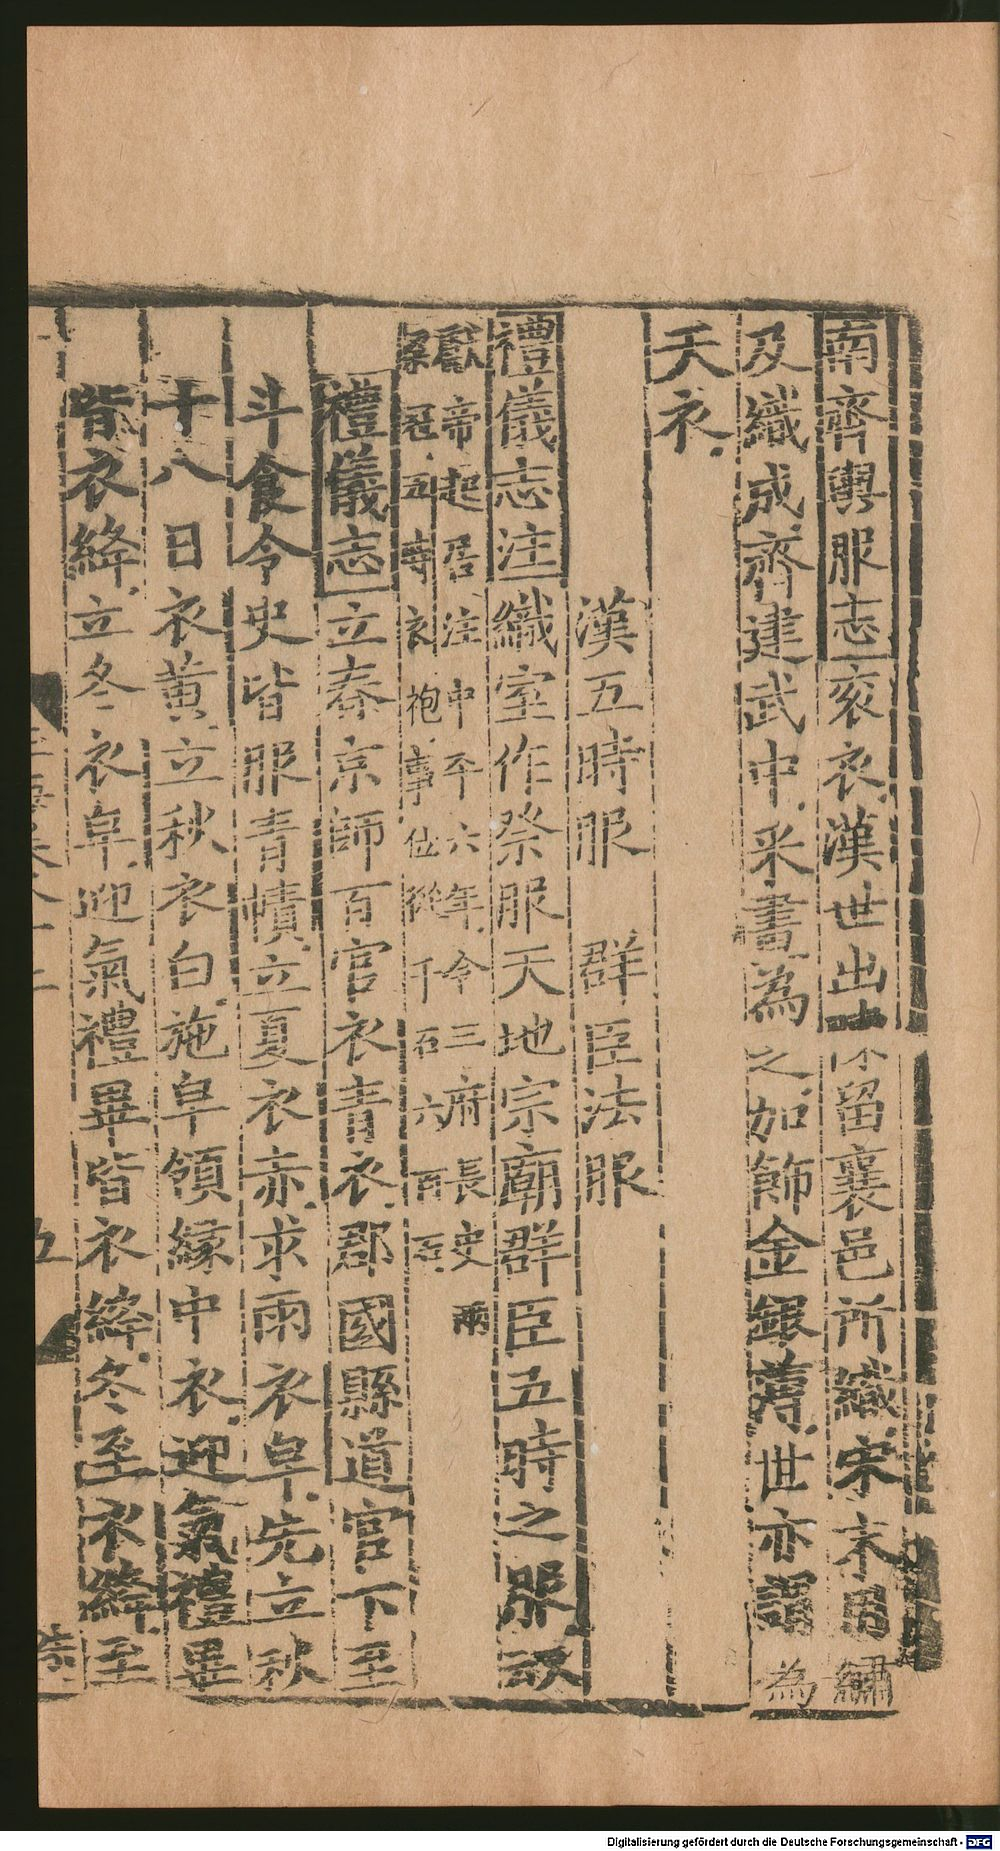 南齊輿服志衮衣漢世出陳留襄邑所織宋末用繡
及織成齊建武中采畫為之加飾金銀薄世亦謂為
天衣
漢五時服 群臣法服
禮儀志注織室作祭服天地宗廟群臣五時之服
獻帝起居注中平六年令三府長史兩
梁冠五時衣袍事位從千石六百石
禮儀志立春京師百官衣青衣郡國縣道官下至
斗食令史皆服青幘立夏衣赤求雨衣皁先立秋
十八日衣黃立秋衣白施皁領緣中衣迎氣禮畢
皆衣絳立冬衣皁迎氣禮畢皆衣絳冬至衣絳至
五
Digitalisierung gefördert durch die Deutsche Forschungsgemeinschaft - DFG